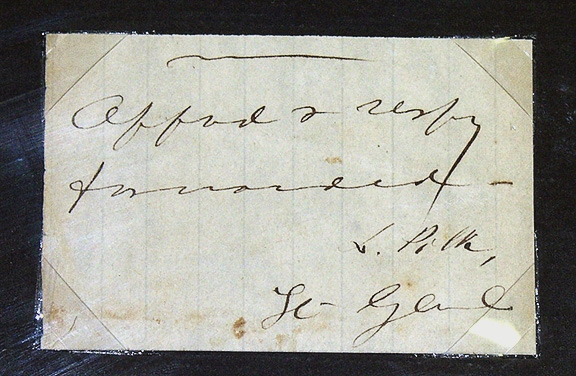 Appvd & respy
forwarded -
L. Polk,
Lt Genl